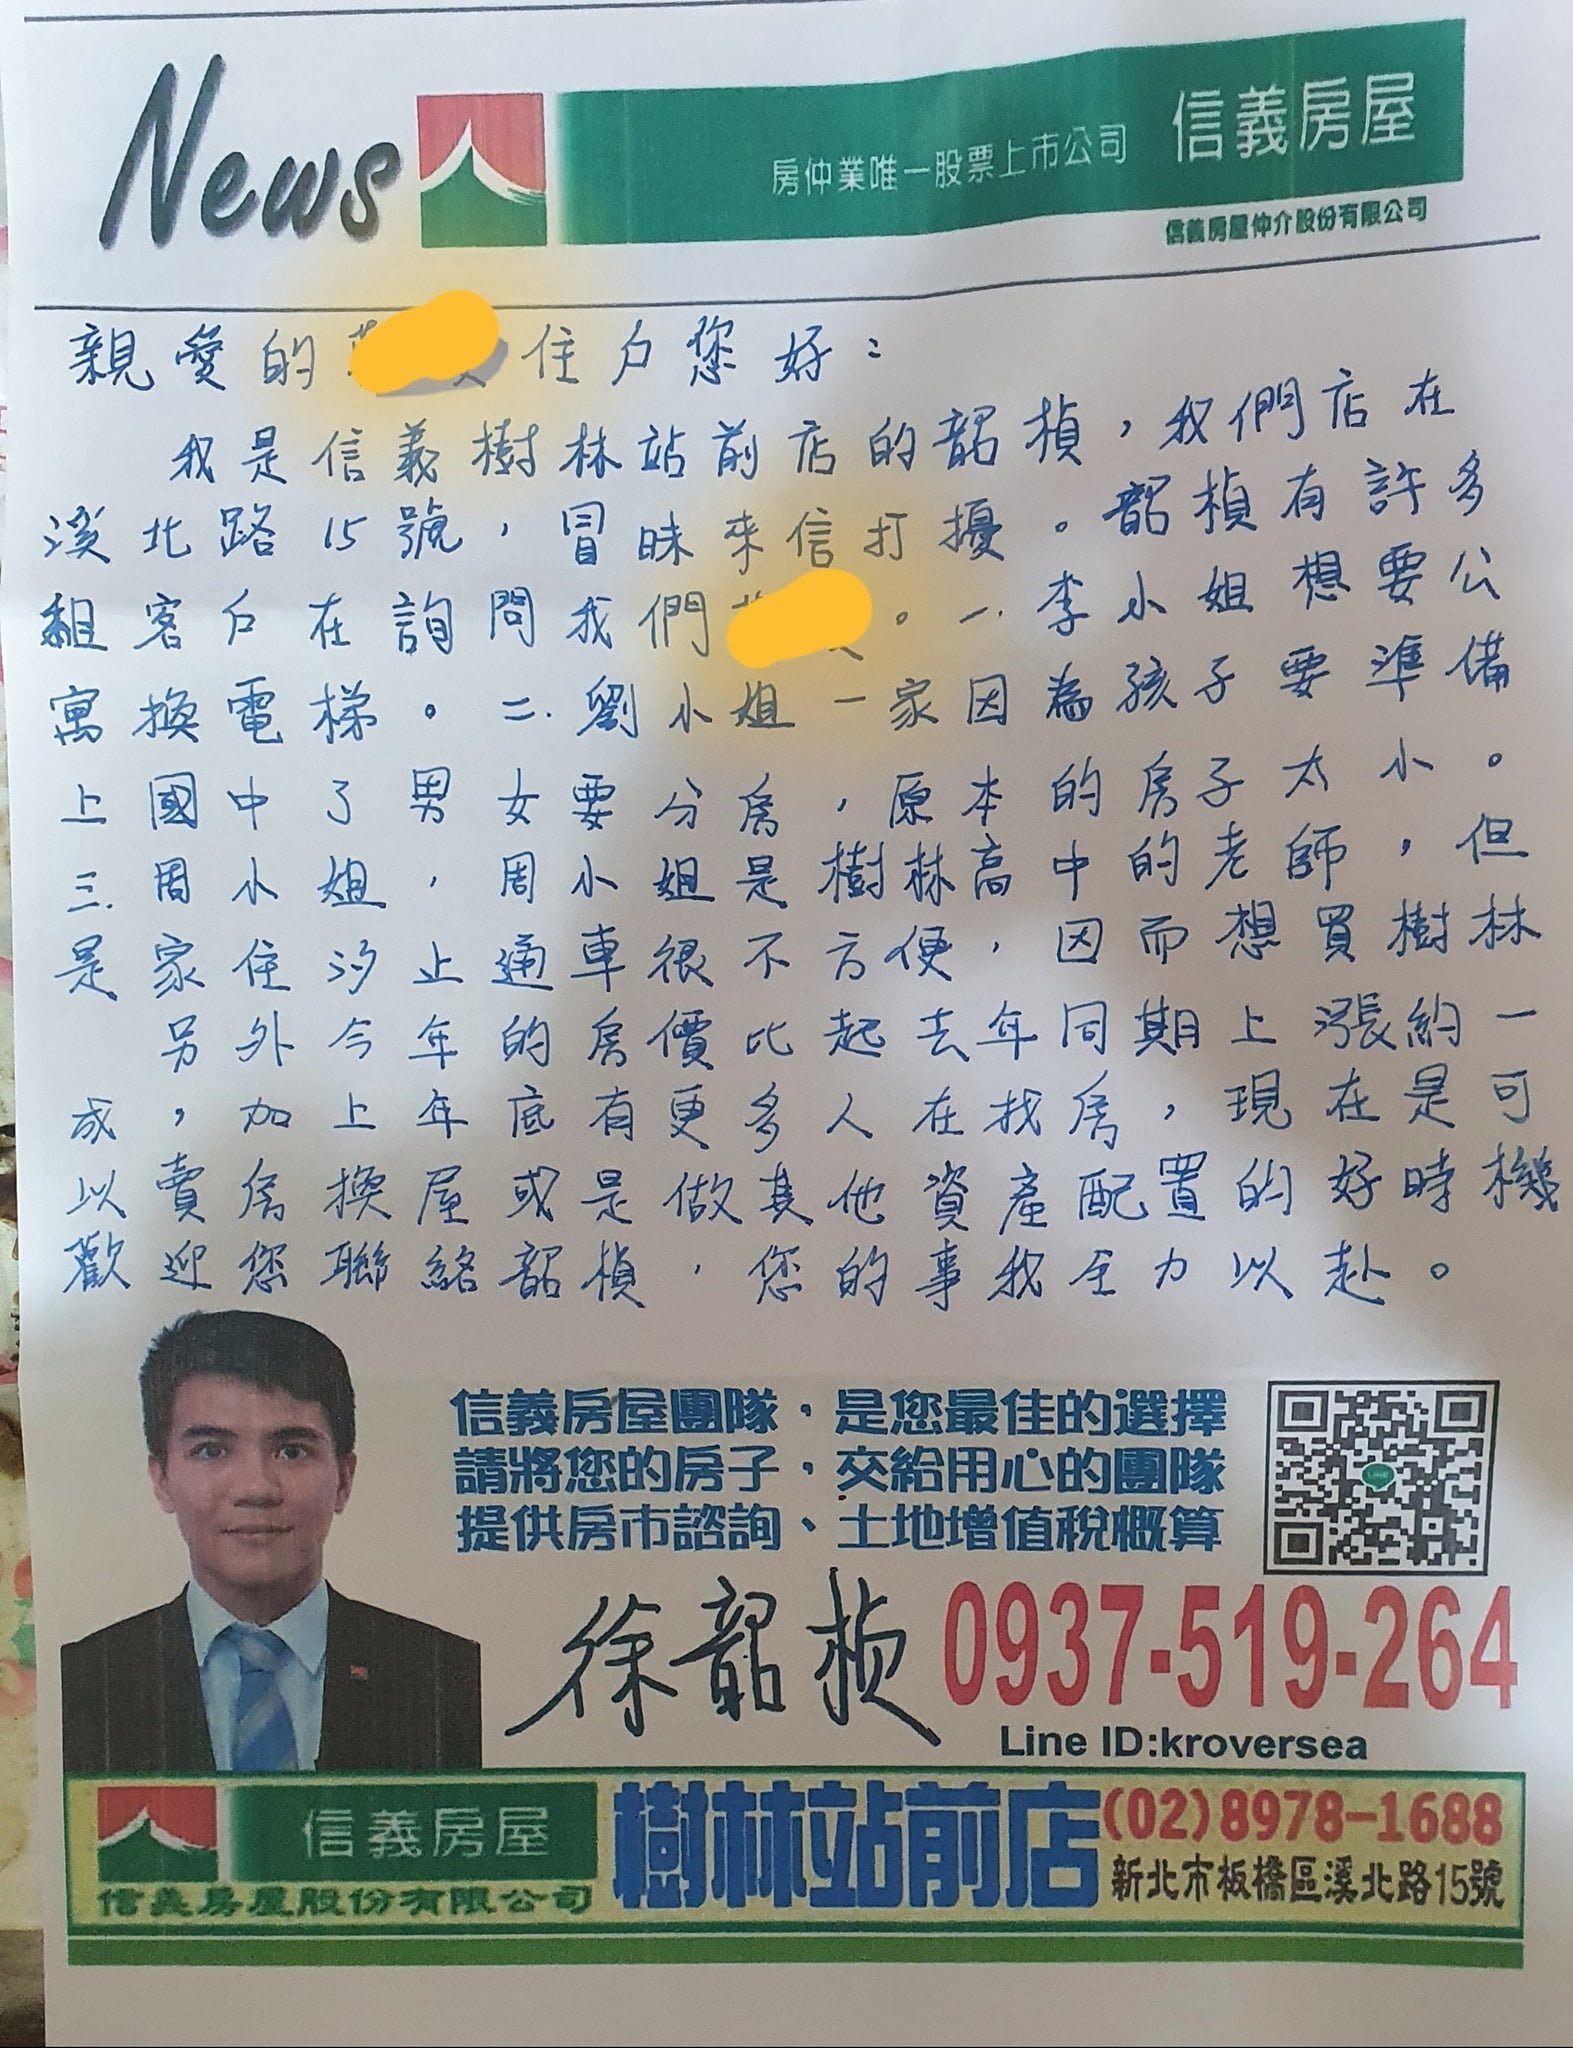 News
房仲業唯一股票上市公司 信義房屋
信義房屋仲介股份有限公司
親愛的 住戶您好：
我是信義樹林站前店的韶楨，我們店在
溪北路15號，冒昧來信打擾。韶楨有許多
組客戶在詢問我們 。一.李小姐想要公
寓換電梯。二.劉小姐一家因為孩子要準備
上國中了男女要分房，原本的房子太小。
三.周小姐，周小姐是樹林高中的老師，但
是家住汐止通車很不方便，因而想買樹林
另外今年的房價比起去年同期上漲約一
成，加上年底有更多人在找房，現在是可
以賣房換屋或是做其他資產配置的好時機
歡迎您聯絡韶楨，您的事我全力以赴。
信義房屋團隊，是您最佳的選擇
請將您的房子，交給用心的團隊
提供房市諮詢、土地增值稅概算
LINE
徐韶楨 0937-519-264
Line ID:kroversea
信義房屋
信義房屋股份有限公司
樹林站前店
(02)8978-1688
新北市板橋區溪北路15號